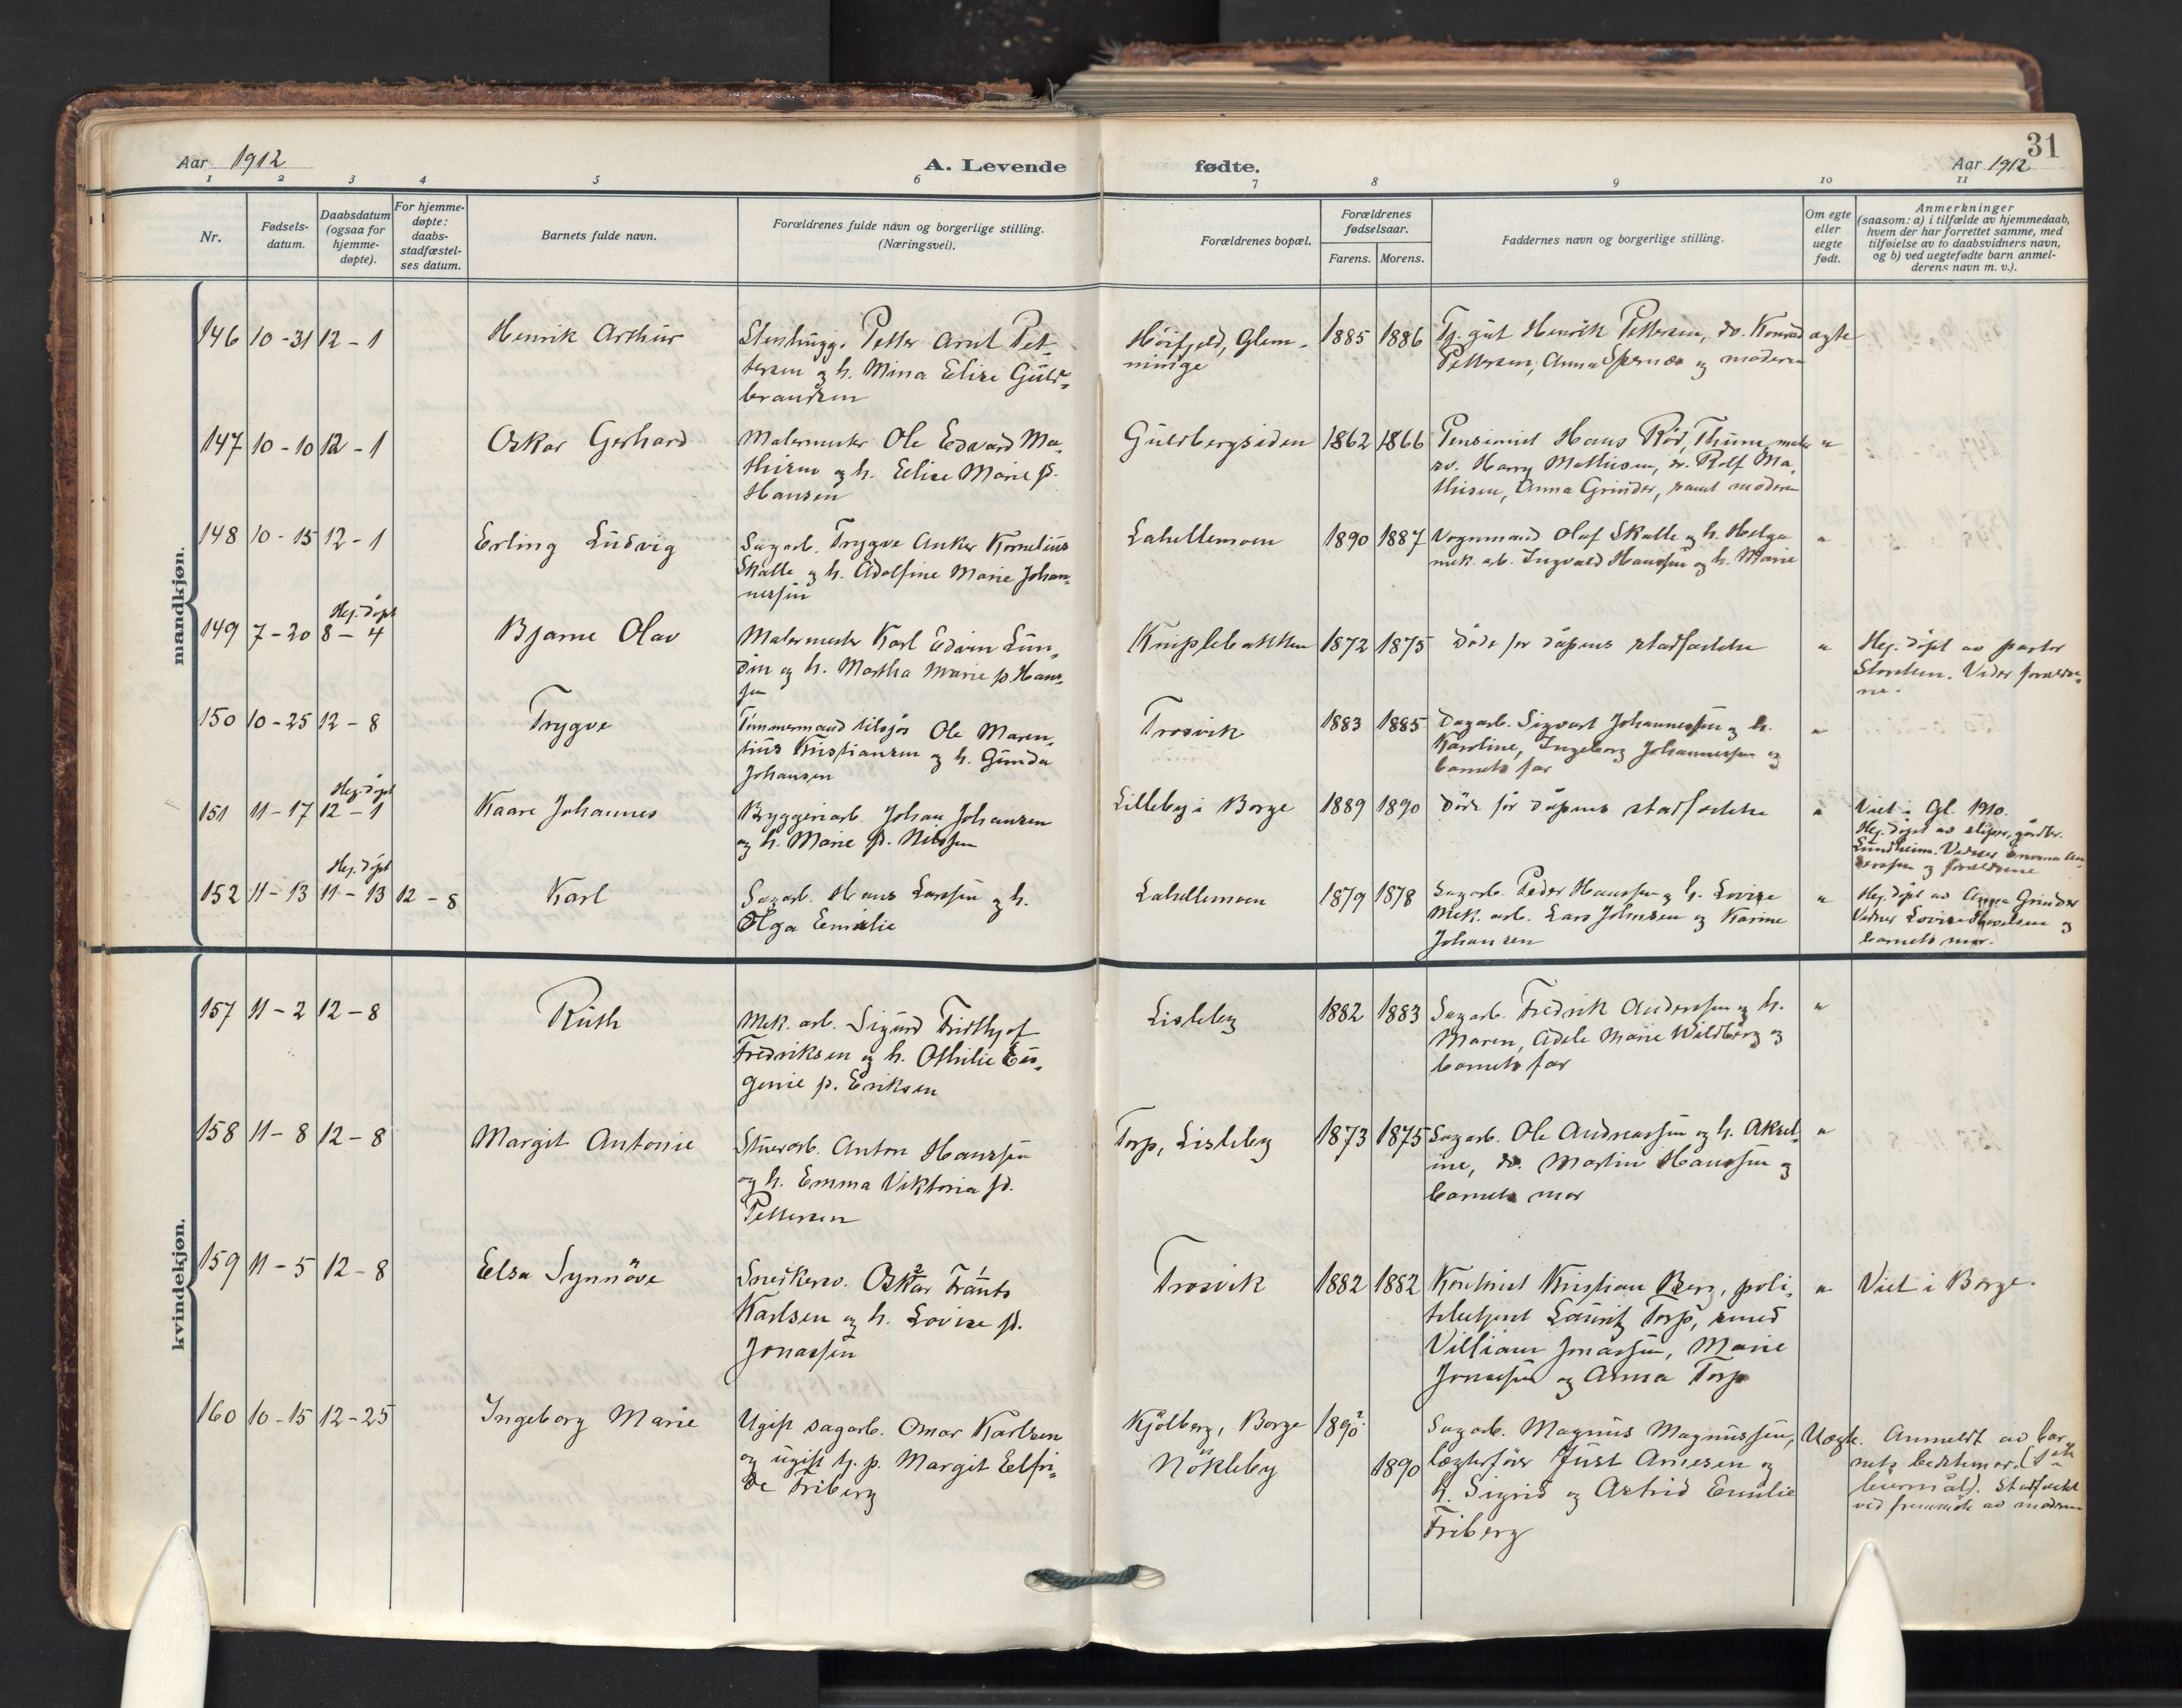 31
Aar 1912
A. Levende fødte.
Aar 1912
1 2 3 4 5 6 7 8 9 10 11
Nr.
Fødsels-
datum.
Daabsdatum
(ogsaa for
hjemme-
døpte).
For hjemme-
døpte:
daabs-
stadfæstel-
ses datum.
Barnets fulde navn.
Forældrenes fulde navn og borgerlige stilling.
(Næringsvei).
Forældrenes bopæl.
Forældrenes
fødselsaar.
Farens. Morens.
Faddernes navn og borgerlige stilling.
Om egte
eller
uegte
født.
Anmerkninger
(saasom: a) i tilfælde av hjemmedaab,
hvem der har forrettet samme, med
tilføielse av to daabsvidners navn,
og b) ved uegtefødte barn anmel-
derens navn m. v.).
mandkjøn.
146 10-31 12-1 Henrik Arthur
Stenhugg. Petter Arnt Pet-
tersen og h. Mina Elise Guld-
brandsen
Høifjeld, Glem-
minge
1885 1886
Tj. gut Henrik Pettersen, do. Konrad
Pettersen, Anna og moderen
ægte
147 10-10 12-1 Oskar Gerhard
Malermester Ole Edvard Ma-
thisen og h. Elise Marie f.
Hansen
Guldbergsiden
1862 1866
Pensionist Hans Rød, Thune, maler
sv. Harry Mathisen, do. Rolf Ma-
thisen, Anna Grinder, samt moderen
"
148 10-15 12-1 Erling Ludvig
Sagarb. Trygve Anker Kornelius
Skalle og h. Adolfine Marie Johan-
nessen
Lahellemoen
1890 1887
Vognmand Olaf Skalle og h. Helga
mek. arb. Ingvald Hanssen og h. Marie
"
149 7-20 Hej. døpt 8-4 Bjarne Olav
Malermester Karl Edvin Lun-
din og h. Martha Marie f. Hans-
sen
Kniplebakken
1872 1875
Døde før dåpens stadfæstelse
"
Hej. døpt av pastor
Storsten. Vidner foræld-
ne.
150 10-25 12-8 Trygve
Tømmermand tilsjøs Ole Maren-
tius Kristiansen og h. Gunda
Johansen
Trosvik
1883 1885
Dagarb. Sigvart Johannessen og h.
Karoline, Ingeborg Johannessen og
barnets far
"
151 11-17 Hej. døpt 12-1 Kaare Johannes
Bryggeriarb. Johan Johansen
og h. Marie f. Nilssen
Lilleby i Borge
1889 1890
Døde før dåpens stadfæstelse
"
Viet i Gl. 1910.
Hej. døpt av
Sundheim. Vidner An-
derssen og forældrene
152 11-13 Hej. døpt 11-13 12-8 Karl
Sagarb. Hans Larssen og h.
Olga Emilie
Lahellemoen
1879 1878
Sagarb. Peder Hanssen og h. Lovise
Mek. arb. Lars Johnsen og Karine
Johansen
"
Hej. døpt av Anna Grinder
Vidner Lovise og
barnets mor.
kvindekjøn.
157 11-2 12-8 Ruth
Mek. arb. Sigurd Fridthjof
Fredriksen og h. Othilie Eu-
genie f. Eriksen
Lisleby
1882 1883
Sagarb. Fredrik Anderssen og h.
Maren, Adele Marie Wildberg og
barnets far
"
158 11-8 12-8 Margit Antonie
Stuerarb. Anton Hanssen
og h. Emma Viktoria fd.
Pettersen
Torp, Lisleby
1873 1875
Sagarb. Ole Andreassen og h. Aksel-
ine, do. Martin Hanssen og
barnets mor
"
159 11-5 12-8 Elsa Synnöve
Snekkersv. Oskar 2 Frants 1
Karlsen og h. Lovise fd.
Jonassen
Trosvik
1882 1882
Kontorist Kristian Berg, poli-
tibetjent Lauritz Torp, smed
Villiam Jonassen, Marie
Jonassen og Anna Torp
"
Viet i Borge.
160 10-15 12-25 Ingeborg Marie
Ugift sagarb. Omar Karlsen
og ugift tj. p. Margit Elfri-
de Friberg
Kjölberg, Borge
Nökleby
1892
1890
Sagarb. Magnus Magnussen,
lægterfører Just Arnesen og
h. Sigrid og Astrid Emilie
Friberg
Uægte.
Anmeldt av bar-
nets bedstemor. (1ste
leiermål). Stadfæstet
ved fremmøte av moderen